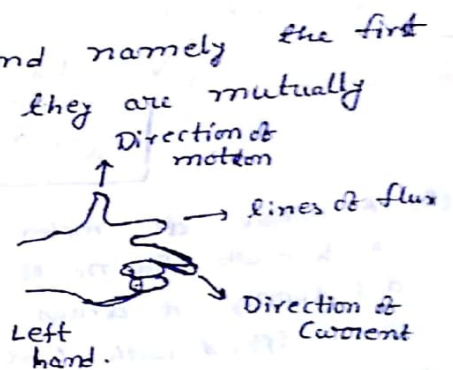 nd namely the first
they are mutually
Direction of
motion
lines of flux
Direction of
Current
Left
hand.